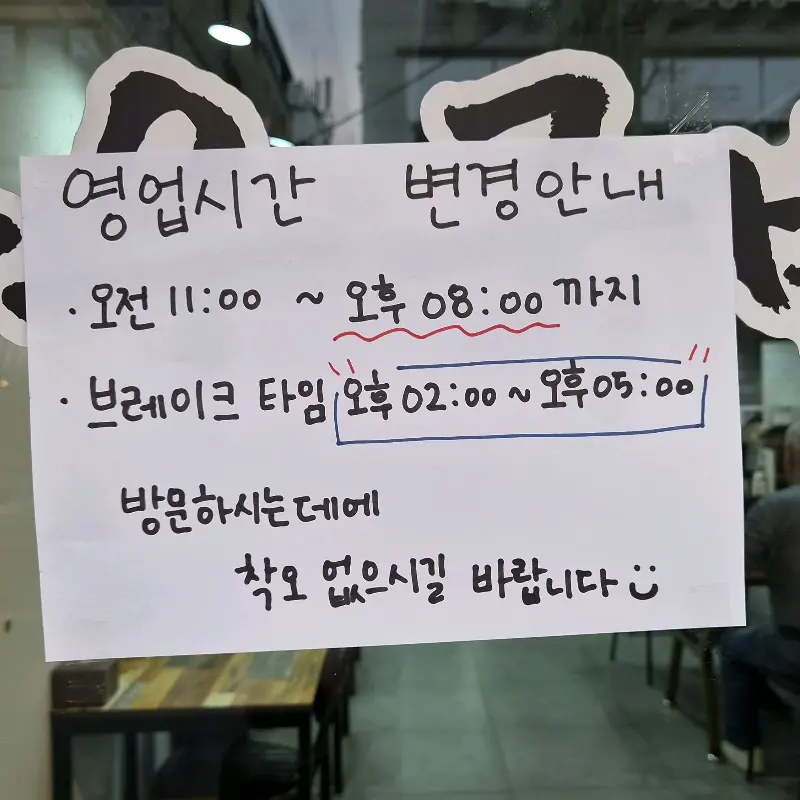 영업시간 변경안내
· 오전 11:00 ~ 오후 08:00 까지
· 브레이크 타임 오후 02:00 ~ 오후 05:00
방문하시는데에
착오 없으시길 바랍니다